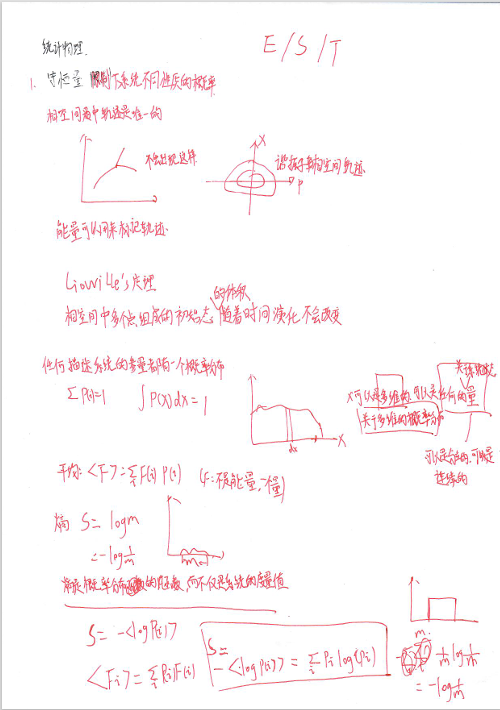 统计物理.
E/S/T
1. 守恒量 限制下系统不同性质的概率
相空间中轨迹是唯一的
不会出现这样
x
谐振子相空间轨迹
p
能量可以用来标记轨迹
Liouville's 定理
的体积
相空间中多个点组成的初始态 随着时间演化不会改变
任何描述系统的变量都有一个概率分布
ΣP(i)=1 ∫P(x)dx=1
x
dx
x可以是多维的, 可以是任何的量
关于多维的概率分布
可以是分立的, 可以是
连续的
平均: <F>=Σ_i F(i) P(i) (F:不是能量,一个量)
熵 S=logm
=-log 1/m
m
熵是概率分布的函数, 而不仅是系统的变量值
S=-<logP(i)>
<F_i>=Σ_i P(i)F(i)
S=
-<logP(i)>=Σ_i P_i log(P_i)
m
1/m log 1/m
=-log 1/m